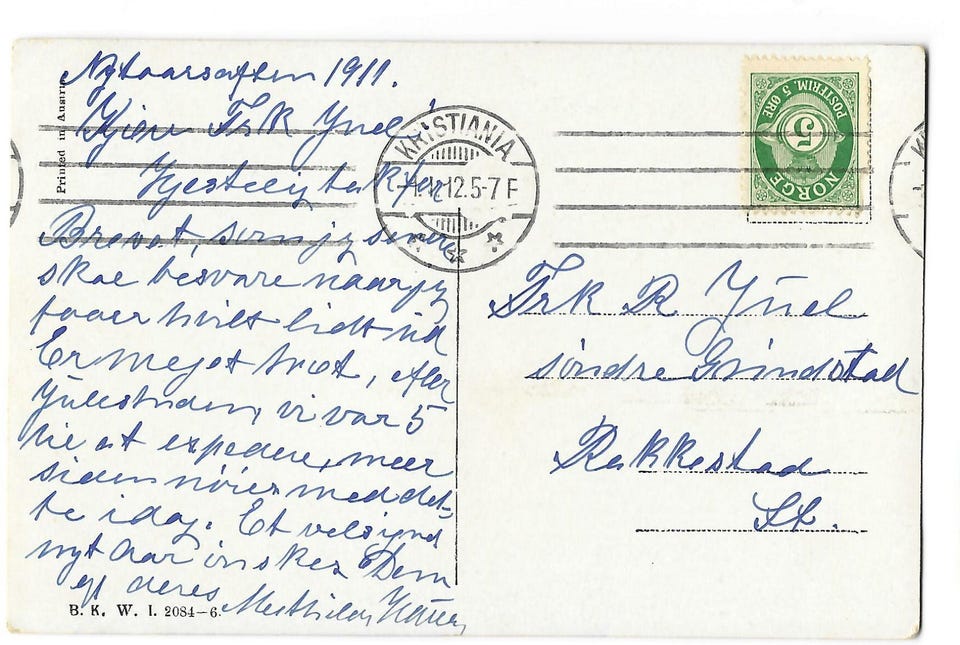 Nytaarsaften 1911.
Kjære Frk Juel!
Hjertelig tak for
Brevet, som jeg senere
skal besvare naar jeg
faaer hvilt lidt ud
Er meget træt, efter
Julestriden, vi var 5
til at expedere, meer
siden nøies med det-
te idag. Et velsignd
nyt Aar ønskes Dem
af deres Mathilde
Printed in Austria
B. K. W. I. 2084–6.
KRISTIANIA
-1.1.12.5-7 F
NORGE
5
POSTFRIM. 5 ØRE
Frk R Juel
søndre Grindstad
Rakkestad
St.